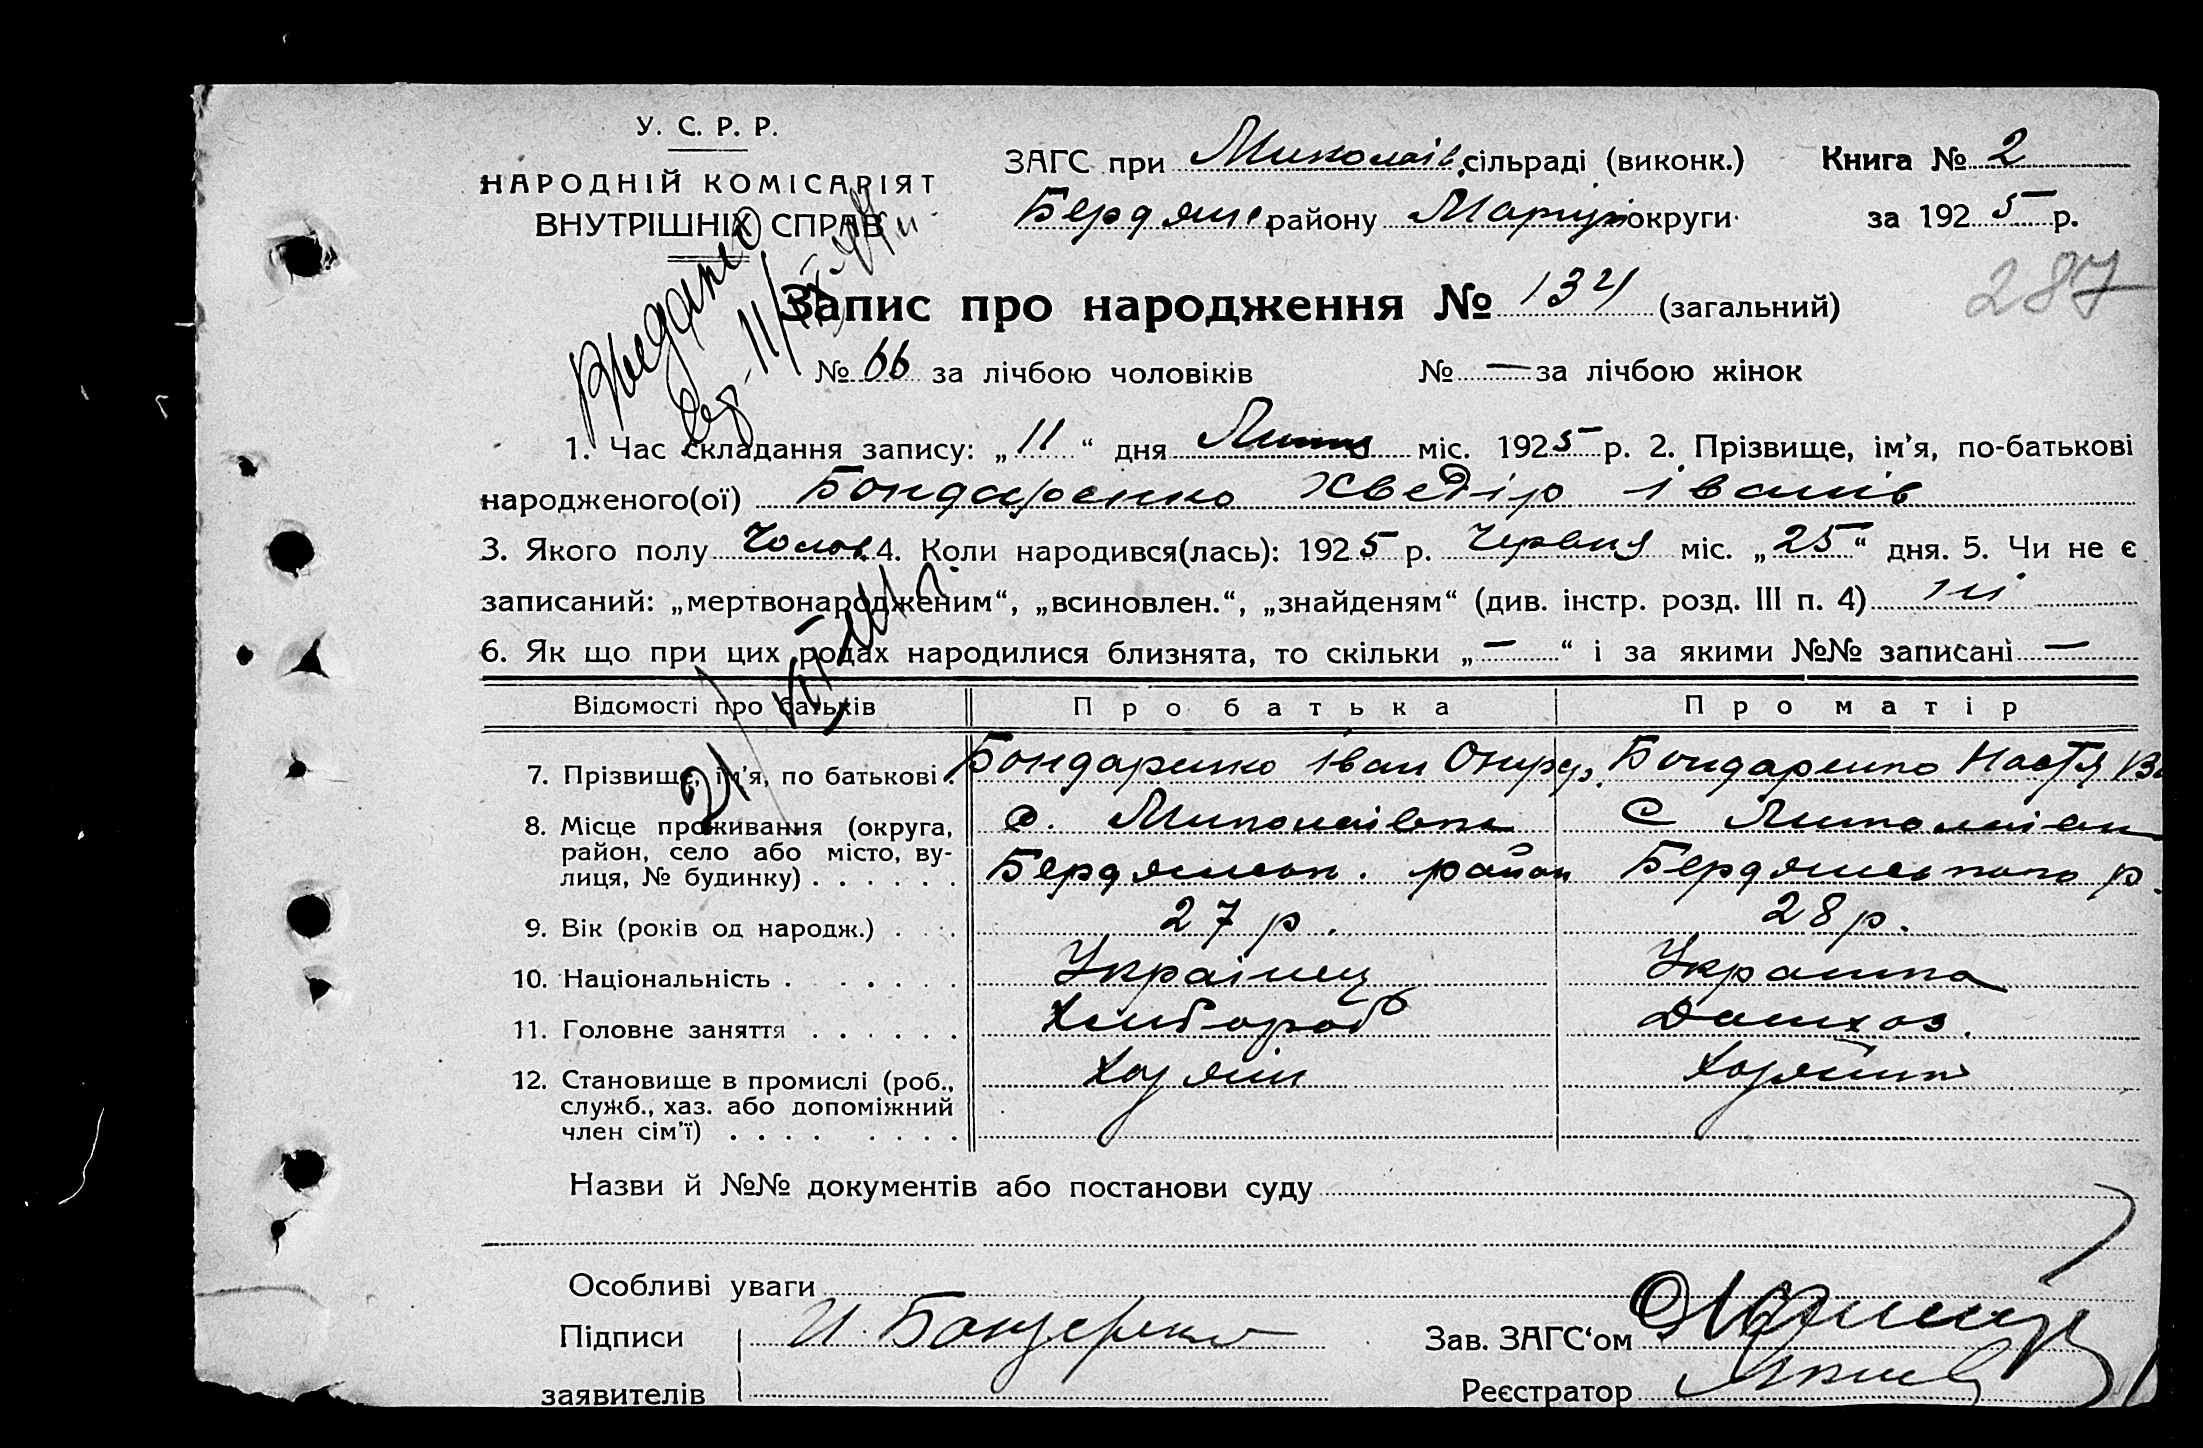 У. С. Р. Р.
НАРОДНІЙ КОМІСАРІЯТ
ВНУТРІШНІХ СПРАВ
ЗАГС при Миколаїв. сільраді (виконк.) Книга № 2
Бердянс. району Маріуп округи за 1925 р.
287
Запис про народження № 134 (загальний)
№ 66 за лічбою чоловіків № — за лічбою жінок
1. Час складання запису: „11“ дня Липня міс. 1925 р. 2. Прізвище, ім'я, по-батькові
народженого(ої) Бондаренко Хведір Іванів
3. Якого полу Чолов. 4. Коли народився(лась): 1925 р. Червня міс. „25“ дня. 5. Чи не є
записаний: „мертвонародженим“, „всиновлен.“, „знайденям“ (див. інстр. розд. III п. 4) ні
6. Як що при цих родах народилися близнята, то скільки „—“ і за якими №№ записані —
Відомості про батьків Про батька Про матір
7. Прізвище, ім'я, по батькові Бондаренко Іван Бондаренко Настя
8. Місце проживання (округа, район, село або місто, вулиця, № будинку) с. Миколаівка С Миколаівка
Бердянськ. район Бердянського р.
9. Вік (років од народж.) 27 р. 28 р.
10. Національність Українец Украінка
11. Головне заняття Хлібороб Домхоз.
12. Становище в промислі (роб., служб., хаз. або допоміжний член сім'ї) Хозяїн Хозяйка
Назви й №№ документів або постанови суду
Особливі уваги
Підписи И Бондаренко Зав. ЗАГС'ом
заявителів Реєстратор